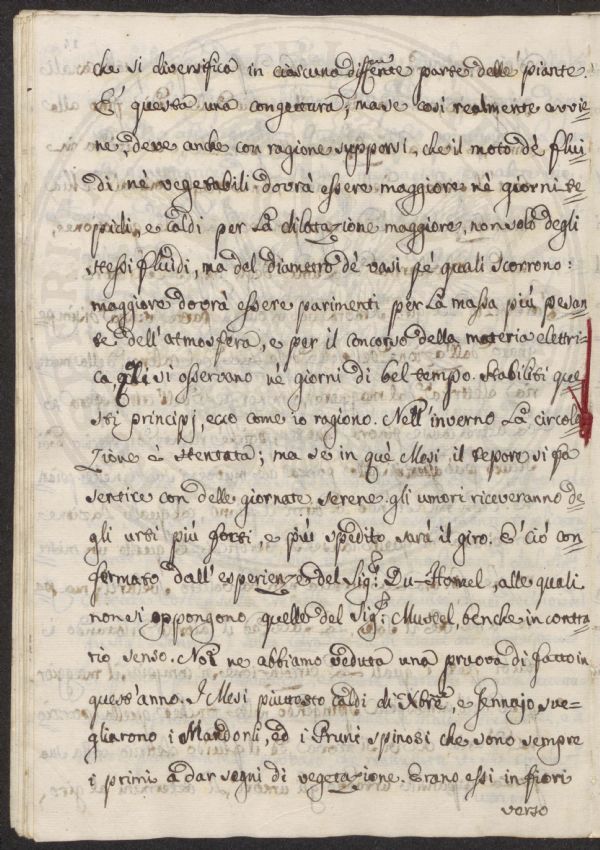 che si diversifica in ciascuna differente parte delle piante.
E' questa una congettura; ma se così realmente avvie=
ne, deve anche con ragione supporsi, che il moto dè flui=
di nè vegetabili dovrà essere maggiore nè giorni te=
pidi, e caldi per la dilatazione maggiore, non solo degli
stessi fluidi, ma del diametro dè vasi, pe' quali scorrono:
maggiore dovrà essere parimenti per la massa più pesan=
te dell'atmosfera, e per il concorso della materia elettri=
ca si osservano nè giorni di bel tempo. Stabiliti que=
sti principj, ecco come io ragiono. Nell'inverno la circola=
zione è stentata; ma se in què Mesi il tepore si fa
sentire con delle giornate serene gli umori riceveranno de=
gli urti più forti, e più spedito sarà il giro. E' ciò con=
fermato dall'esperienze del Sigr: Du-Hamel, alle quali
non si oppongono quelle del Sigr: Mussel, benche in contra=
rio senso. Noi ne abbiamo veduta una pruova di fatto in
quest'anno. I Mesi piuttosto caldi di Xbre, e Gennajo sve=
gliarono i Mandorli, ed i Pruni spinosi che sono sempre
i primi a dar segni di vegetazione. Erano essi in fiori
verso